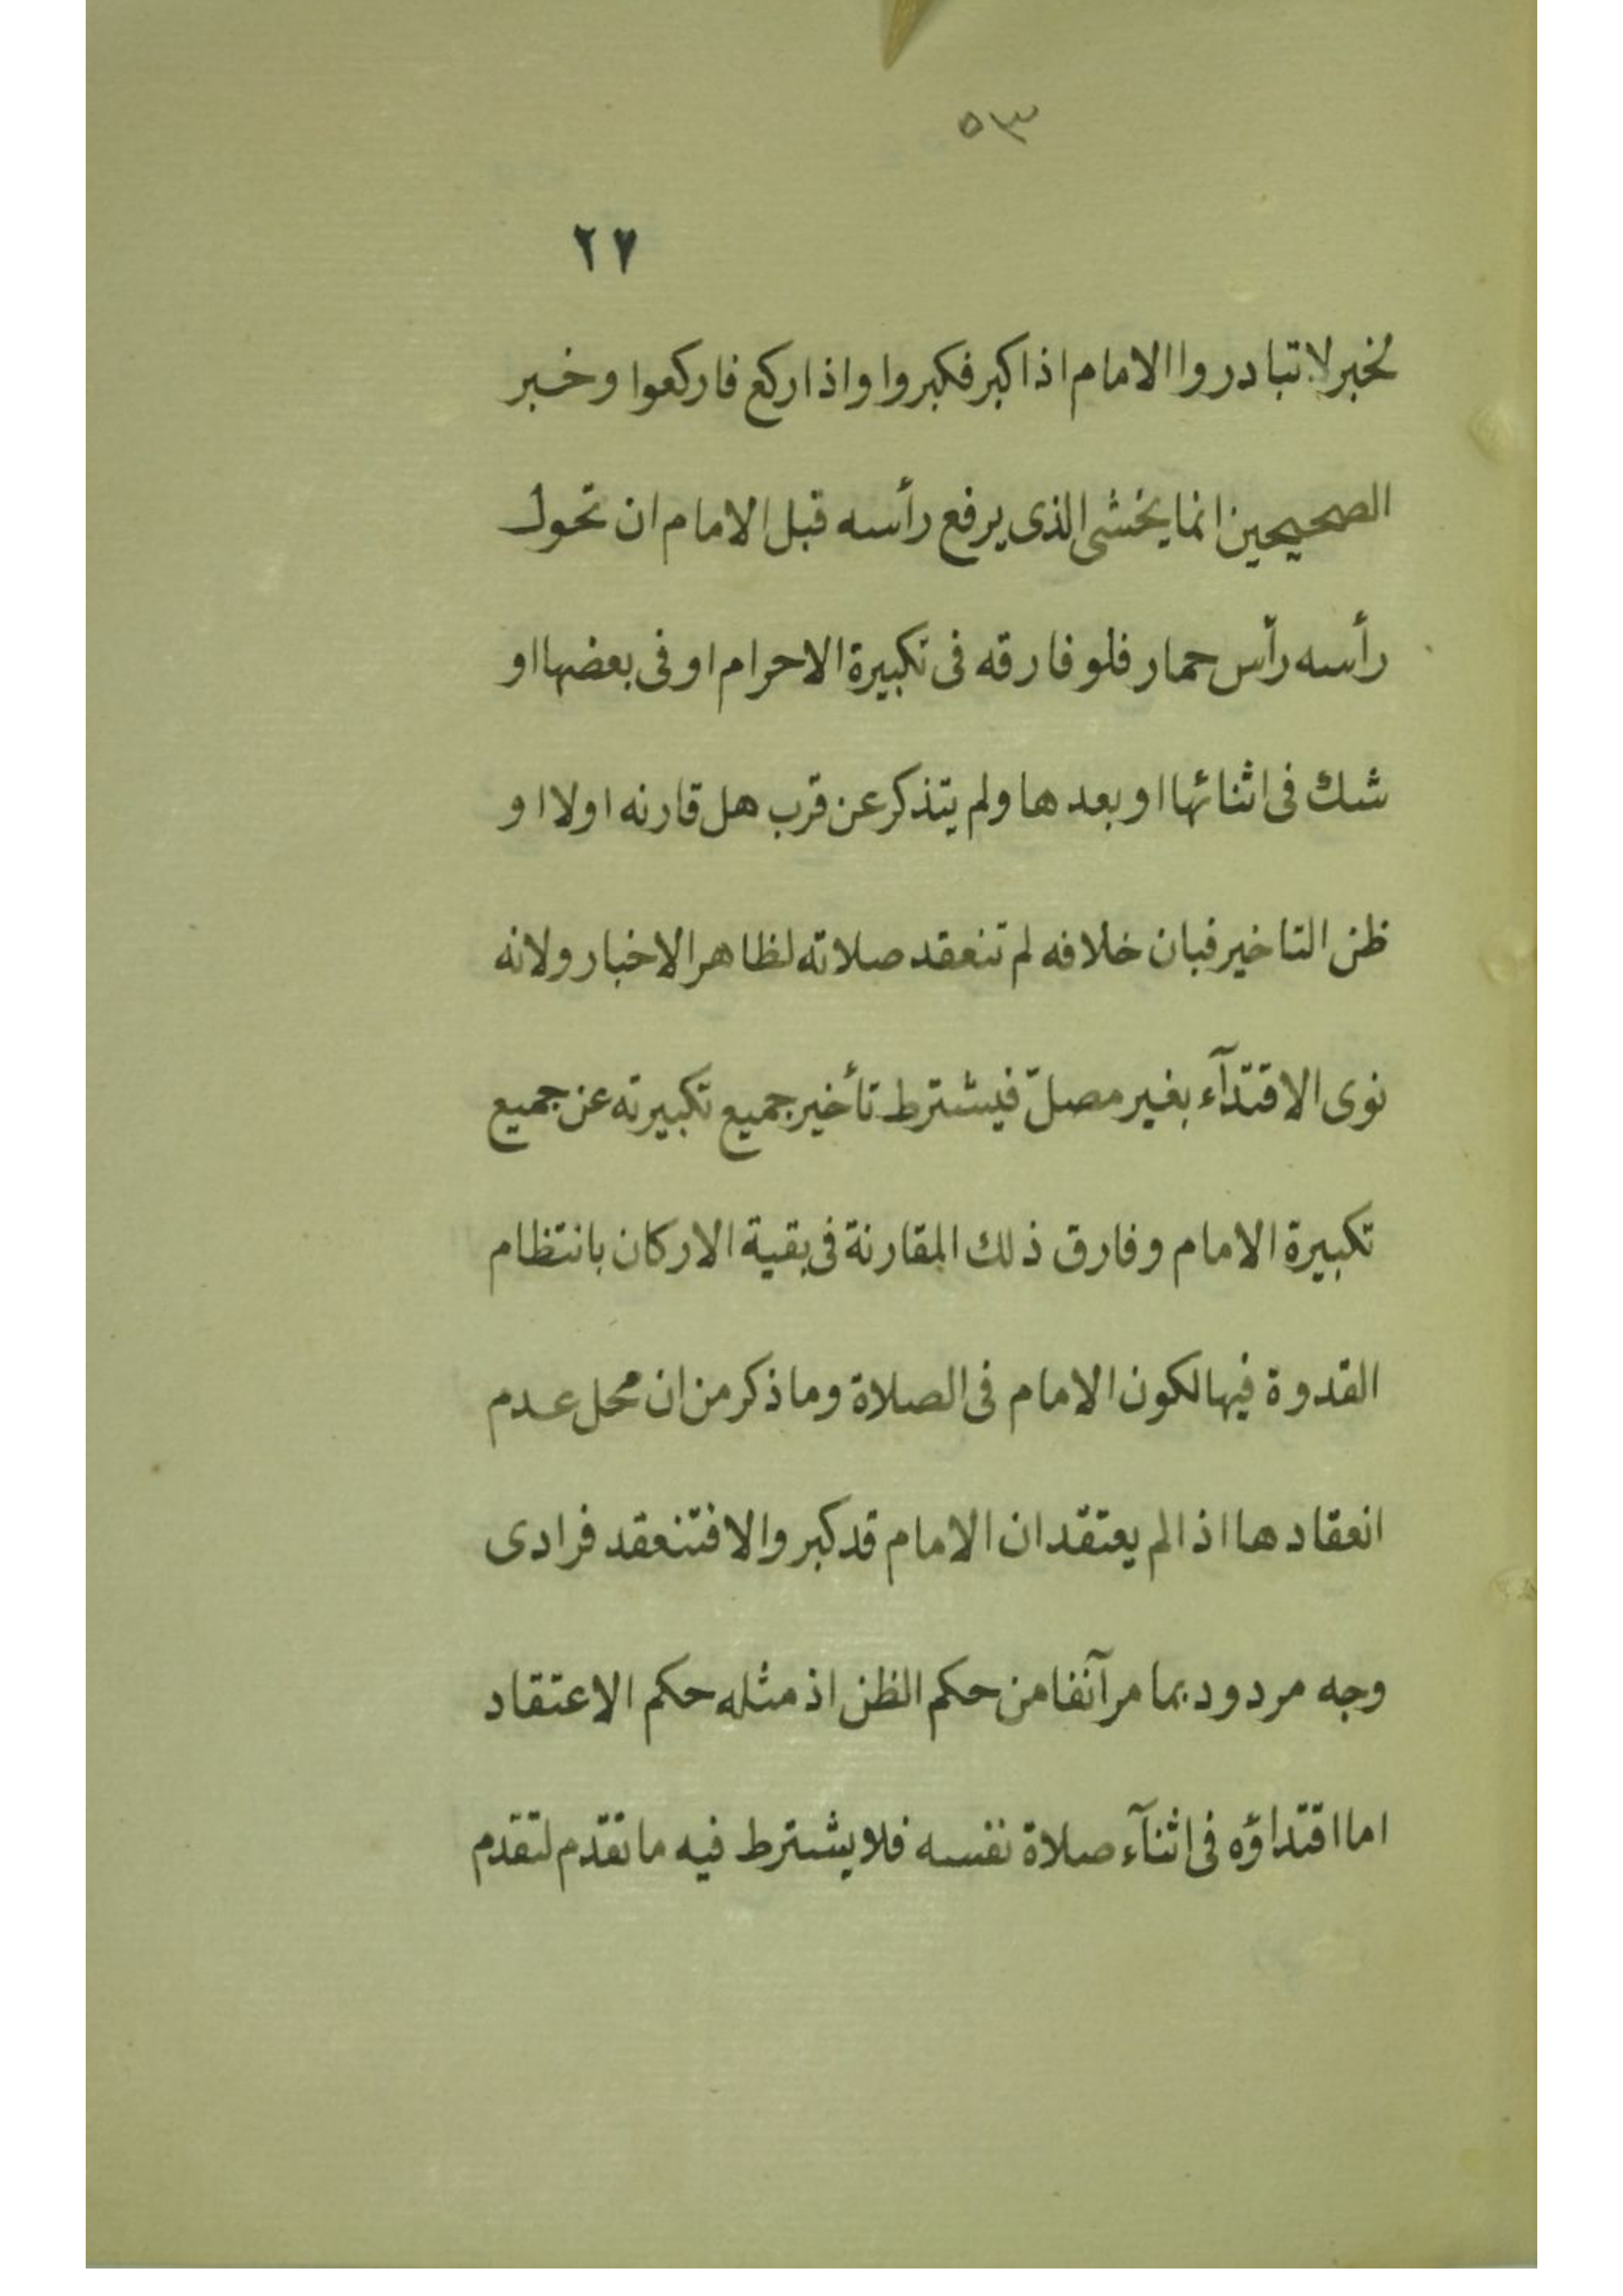 ٥٣
٢٧
لخبر لا تبادروا الامام اذا كبر فكبروا واذا ركع فاركعوا وخبر
الصحيحين انما يخشى الذى يرفع رأسه قبل الامام ان تحول
رأسه رأس حمار فلو فارقه فى تكبيرة الاحرام او فى بعضها او
شك فى اثنائها او بعدها ولم يتذكر عن قرب هل قارنه اولا او
ظن التاخير فبان خلافه لم تنعقد صلاته لظاهر الاخبار ولانه
نوى الاقتدآء بغير مصلّ فيشترط تأخير جميع تكبيرته عن جميع
تكبيرة الامام وفارق ذلك المقارنة فى بقية الاركان بانتظام
القدوة فيها لكون الامام فى الصلاة وما ذكر من ان محل عدم
انعقادها اذا لم يعتقد ان الامام قد كبر والا فتنعقد فرادى
وجه مردود بما مر آنفا من حكم الظن اذ مثله حكم الاعتقاد
اما اقتداؤه فى اثنآء صلاة نفسه فلا يشترط فيه ما تقدّم لتقدم